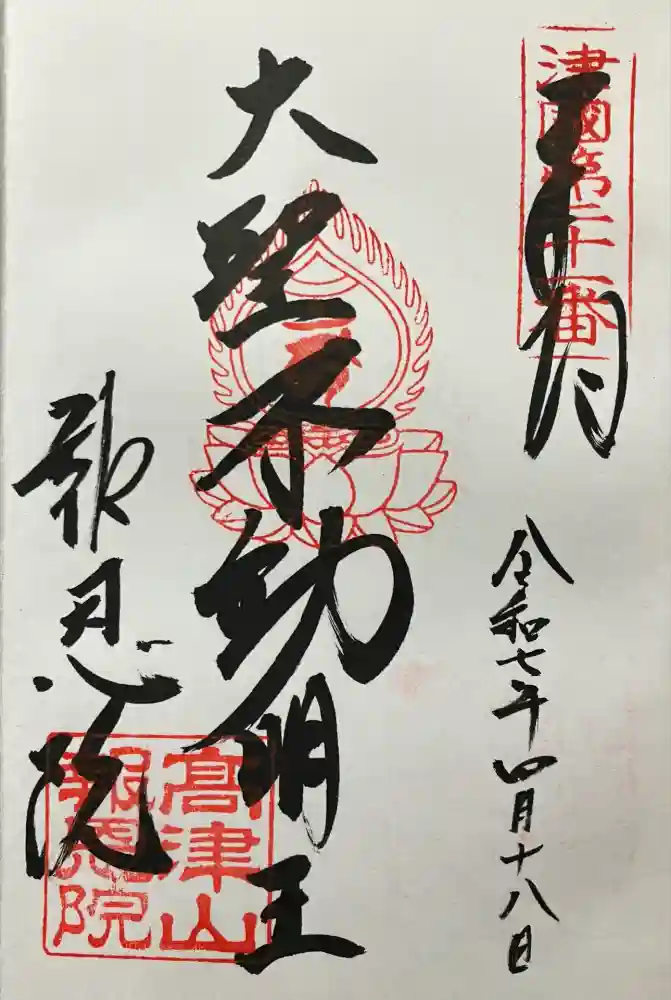 奉拝
津國第三十一番
令和七年四月十八日
大聖不動明王
報恩院
高津山
報恩院